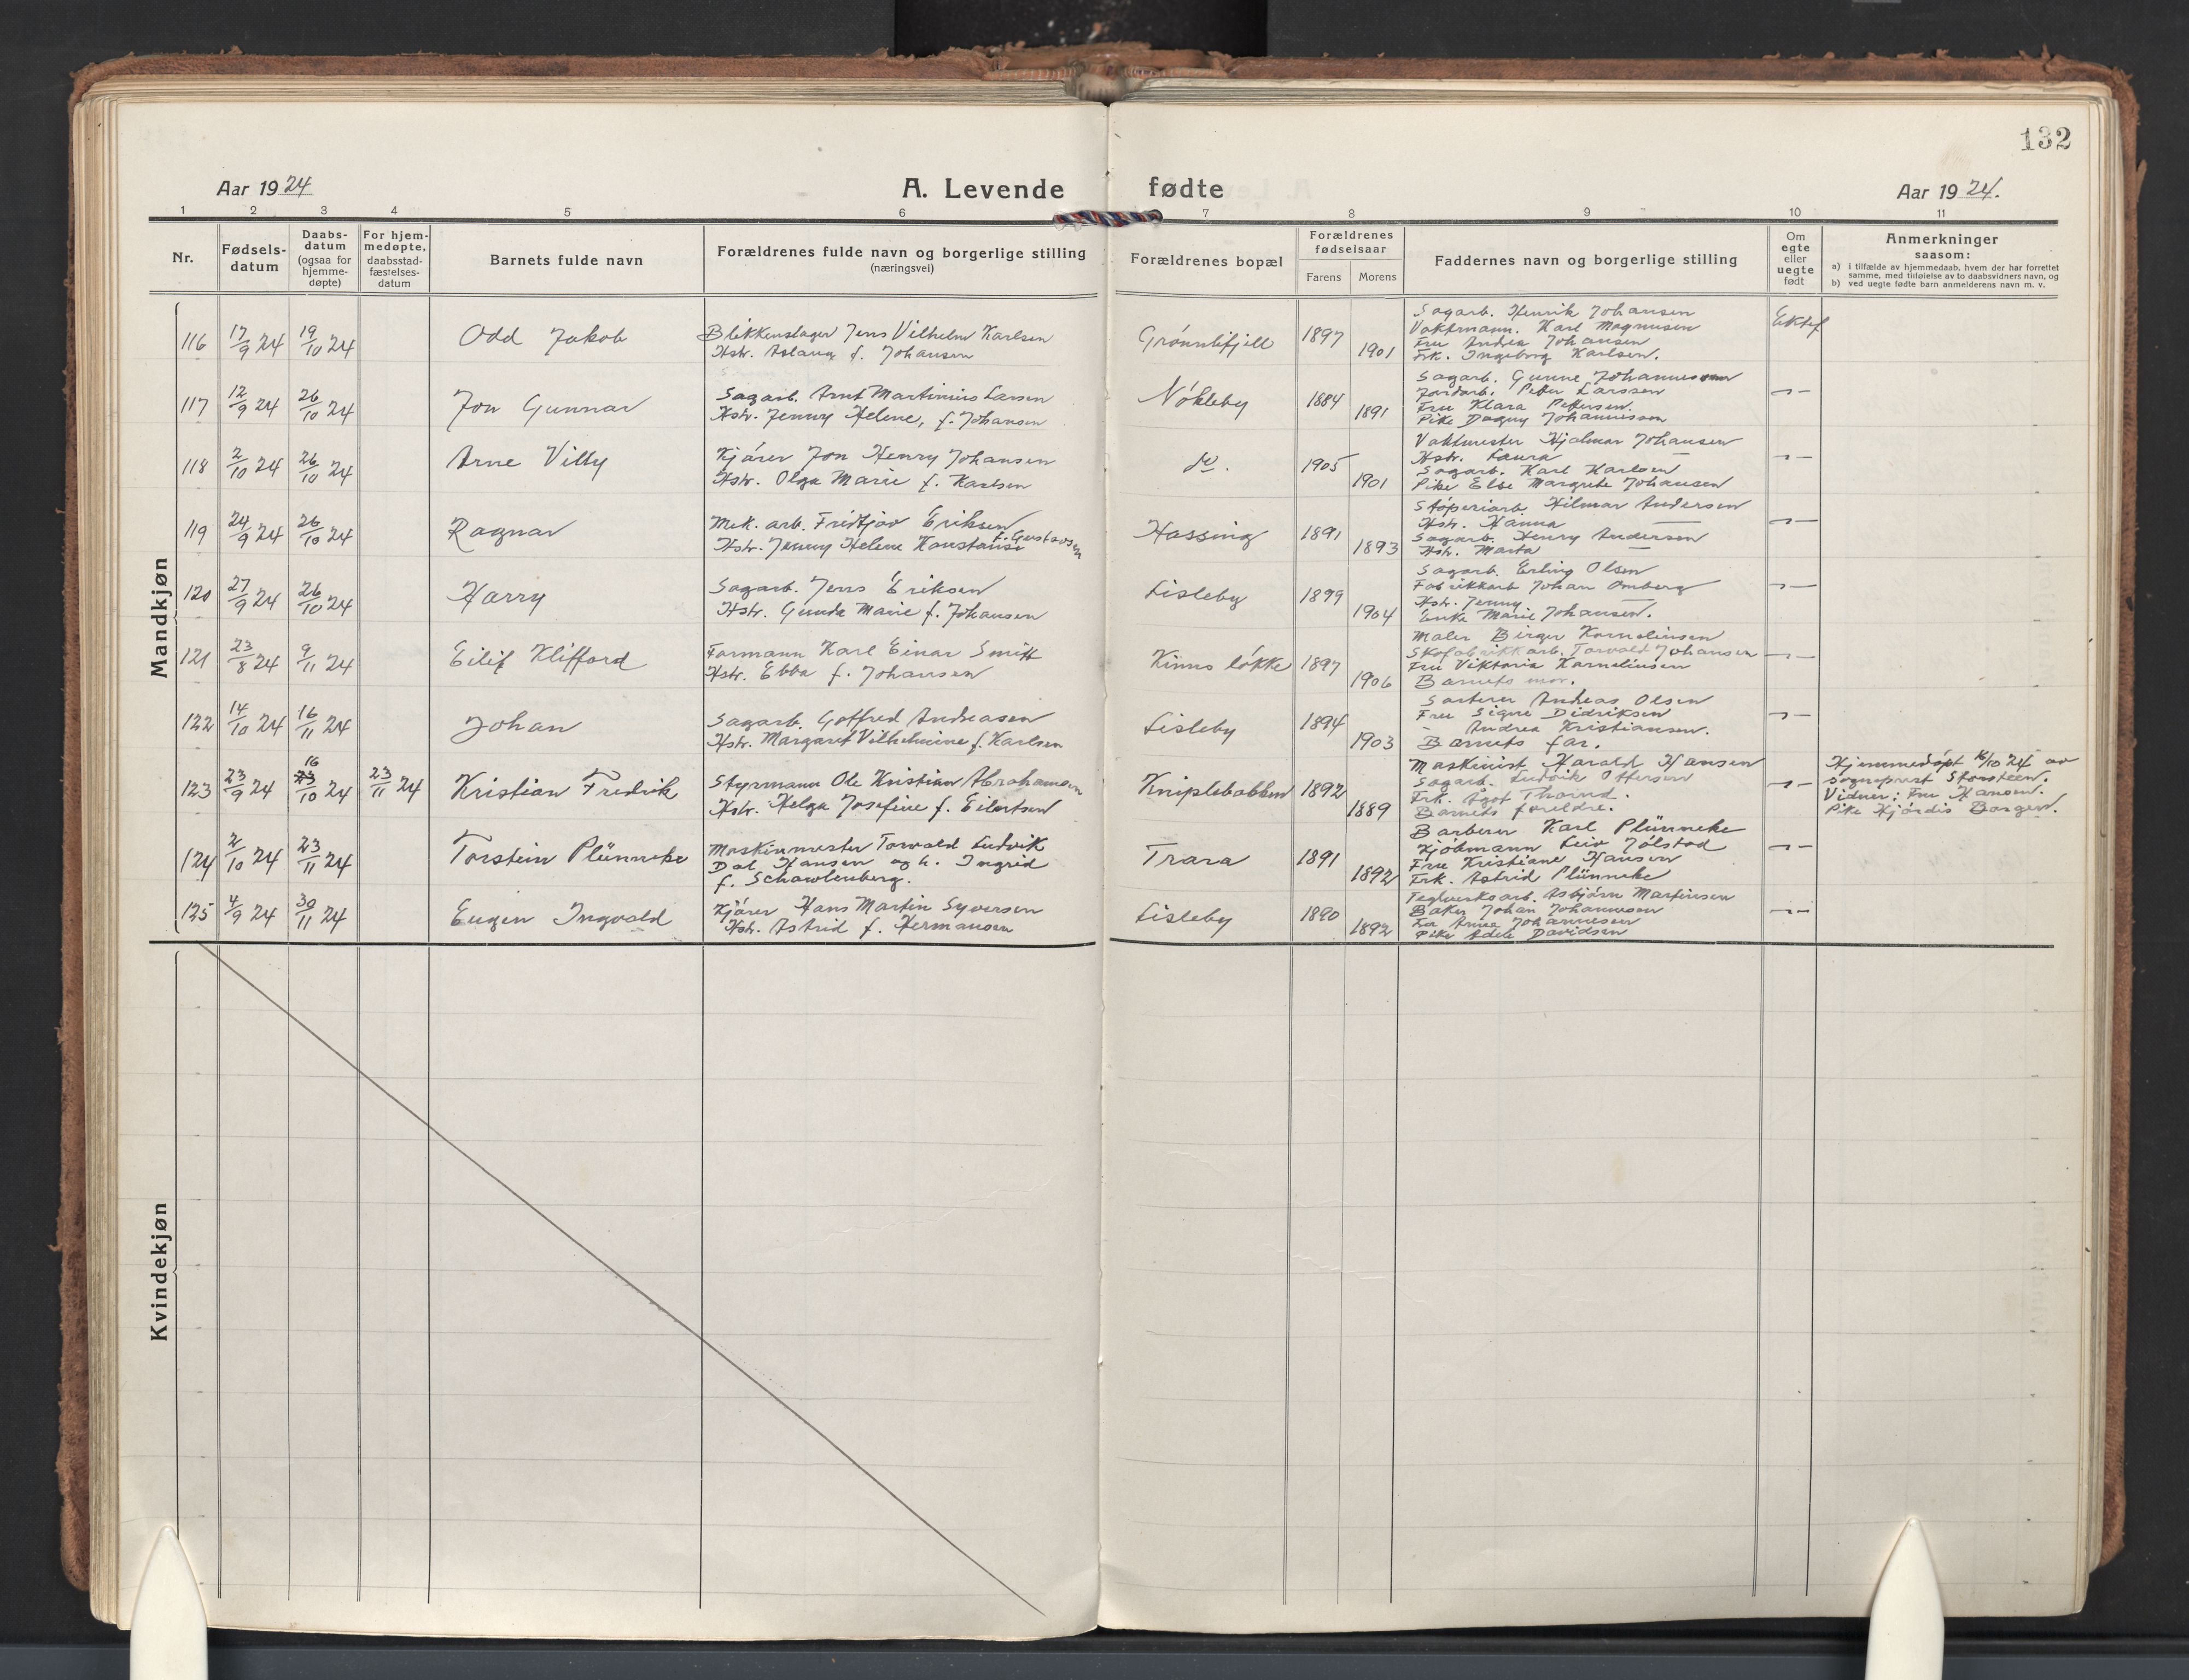 132
Aar 1924
A. Levende fødte
Aar 1924.
1 2 3 4 5 6 7 8 9 10 11
Nr.
Fødsels-
datum
Daabs-
datum
(ogsaa for
hjemme-
døpte)
For hjem-
medøpte,
daabsstad-
fæstelses-
datum
Barnets fulde navn
Forældrenes fulde navn og borgerlige stilling
(næringsvei)
Forældrenes bopæl
Forældrenes
fødselsaar
Farens Morens
Faddernes navn og borgerlige stilling
Om
egte
eller
uegte
født
Anmerkninger
saasom:
a) i tilfælde av hjemmedaab, hvem der har forrettet
samme, med tilføielse av to daabsvidners navn, og
b) ved uegte fødte barn anmelderens navn m. v.
Mandkjøn
116 17/9 24 19/10 24 Odd Jakob
Blikkenslager Jens Vilhelm Karlsen
Hstr. Aslaug f. Johansen
Grønnlifjell 1897 1901
Sagarb. Henrik Johansen
Vaktmann. Karl Magnusen
Fru Andrea Johansen
Frk. Ingeborg Karlsen.
Ektef
117 12/9 24 26/10 24 Jon Gunnar
Sagarb. Arnt Martinius Larsen
Hstr. Jenny Helene, f. Johansen
Nökleby 1884 1891
Sagarb. Gunne Johannessen
Jordarb. Petter Larssen
Fru Klara Pettersen.
Pike Dagny Johannesson
118 2/10 24 26/10 24 Arne Villy
Kjörer Jon Henry Johansen
Hstr. Olga Marie f. Karlsen
do. 1905 1901
Vaktmester Hjalmar Johansen
Hstr. Laura —
Sagarb. Karl Karlsen
Pike Else Margrete Johansen
119 24/9 24 26/10 24 Ragnar
Mek. arb. Fridtjov Eriksen
Hstr. Jenny Helene Konstanse f. Gustavsen
Hassing 1891 1893
Stöperiarb. Hilmar Andersen
Hstr. Hanna —
Sagarb. Henry Andersen
Hstr. Marta —
120 27/9 24 26/10 24 Harry
Sagarb. Jens Eriksen
Hstr. Gunda Marie f. Johansen
Lisleby 1899 1904
Sagarb. Erling Olsen
Fabrikkarb Johan Omberg
Hstr. Jenny —
Enke Marie Johansen.
121 23/8 24 9/11 24 Eilif Klifford
Formann Karl Einar Smitt
Hstr. Ebba f. Johansen
Kinns lökke 1897 1906
Maler Birger Kornelinsen
Skofabrikkarb. Torvald Johansen
Fru Viktoria Karneliusen
Barnets mor.
122 14/10 24 16/11 24 Johan
Sagarb. Gotfred Andreasen
Hstr. Margaret Vilhelmine f. Karlsen
Lisleby 1894 1903
Sorterer Andreas Olsen
Fru Signe Didriksen
" Andrea Kristiansen.
Barnets far.
123 23/9 24 16/10 24 23/11 24 Kristian Fredrik
Styrmann Ole Kristian Abrahamsen
Hstr. Helga Josefine f. Eilertsen
Kniplebakken 1892 1889
Maskinist Harald Hansen
Sagarb. Ludvik Ottersen
Frk. Ågot
Barnets foreldre.
Hjemmedöpt 16/10 24 av
sogneprest Storsteen.
Vidner: Fru Hansen.
Pike Hjördis Borgen.
124 2/10 24 23/11 24 Torstein Plünneke
Maskinmester Torvald Ludvik
Dal Hansen og h. Ingrid
f. Schawlenberg.
Trara 1891 1892
Barberer Karl Plünneke
Kjöbmann Leiv Jölstad
Fru Kristiane Hansen
Frk. Astrid Plünneke
125 4/9 24 30/11 24 Eugen Ingvald
Kjörer Hans Martin Syversen
Hstr. Astrid f. Hermansen
Lisleby 1890 1892
Teglverksarb. Asbjörn Martinsen
Baker Johan Johannesen
Fru Anna Johannesen
Pike Adele Davidsen
Kvindekjøn